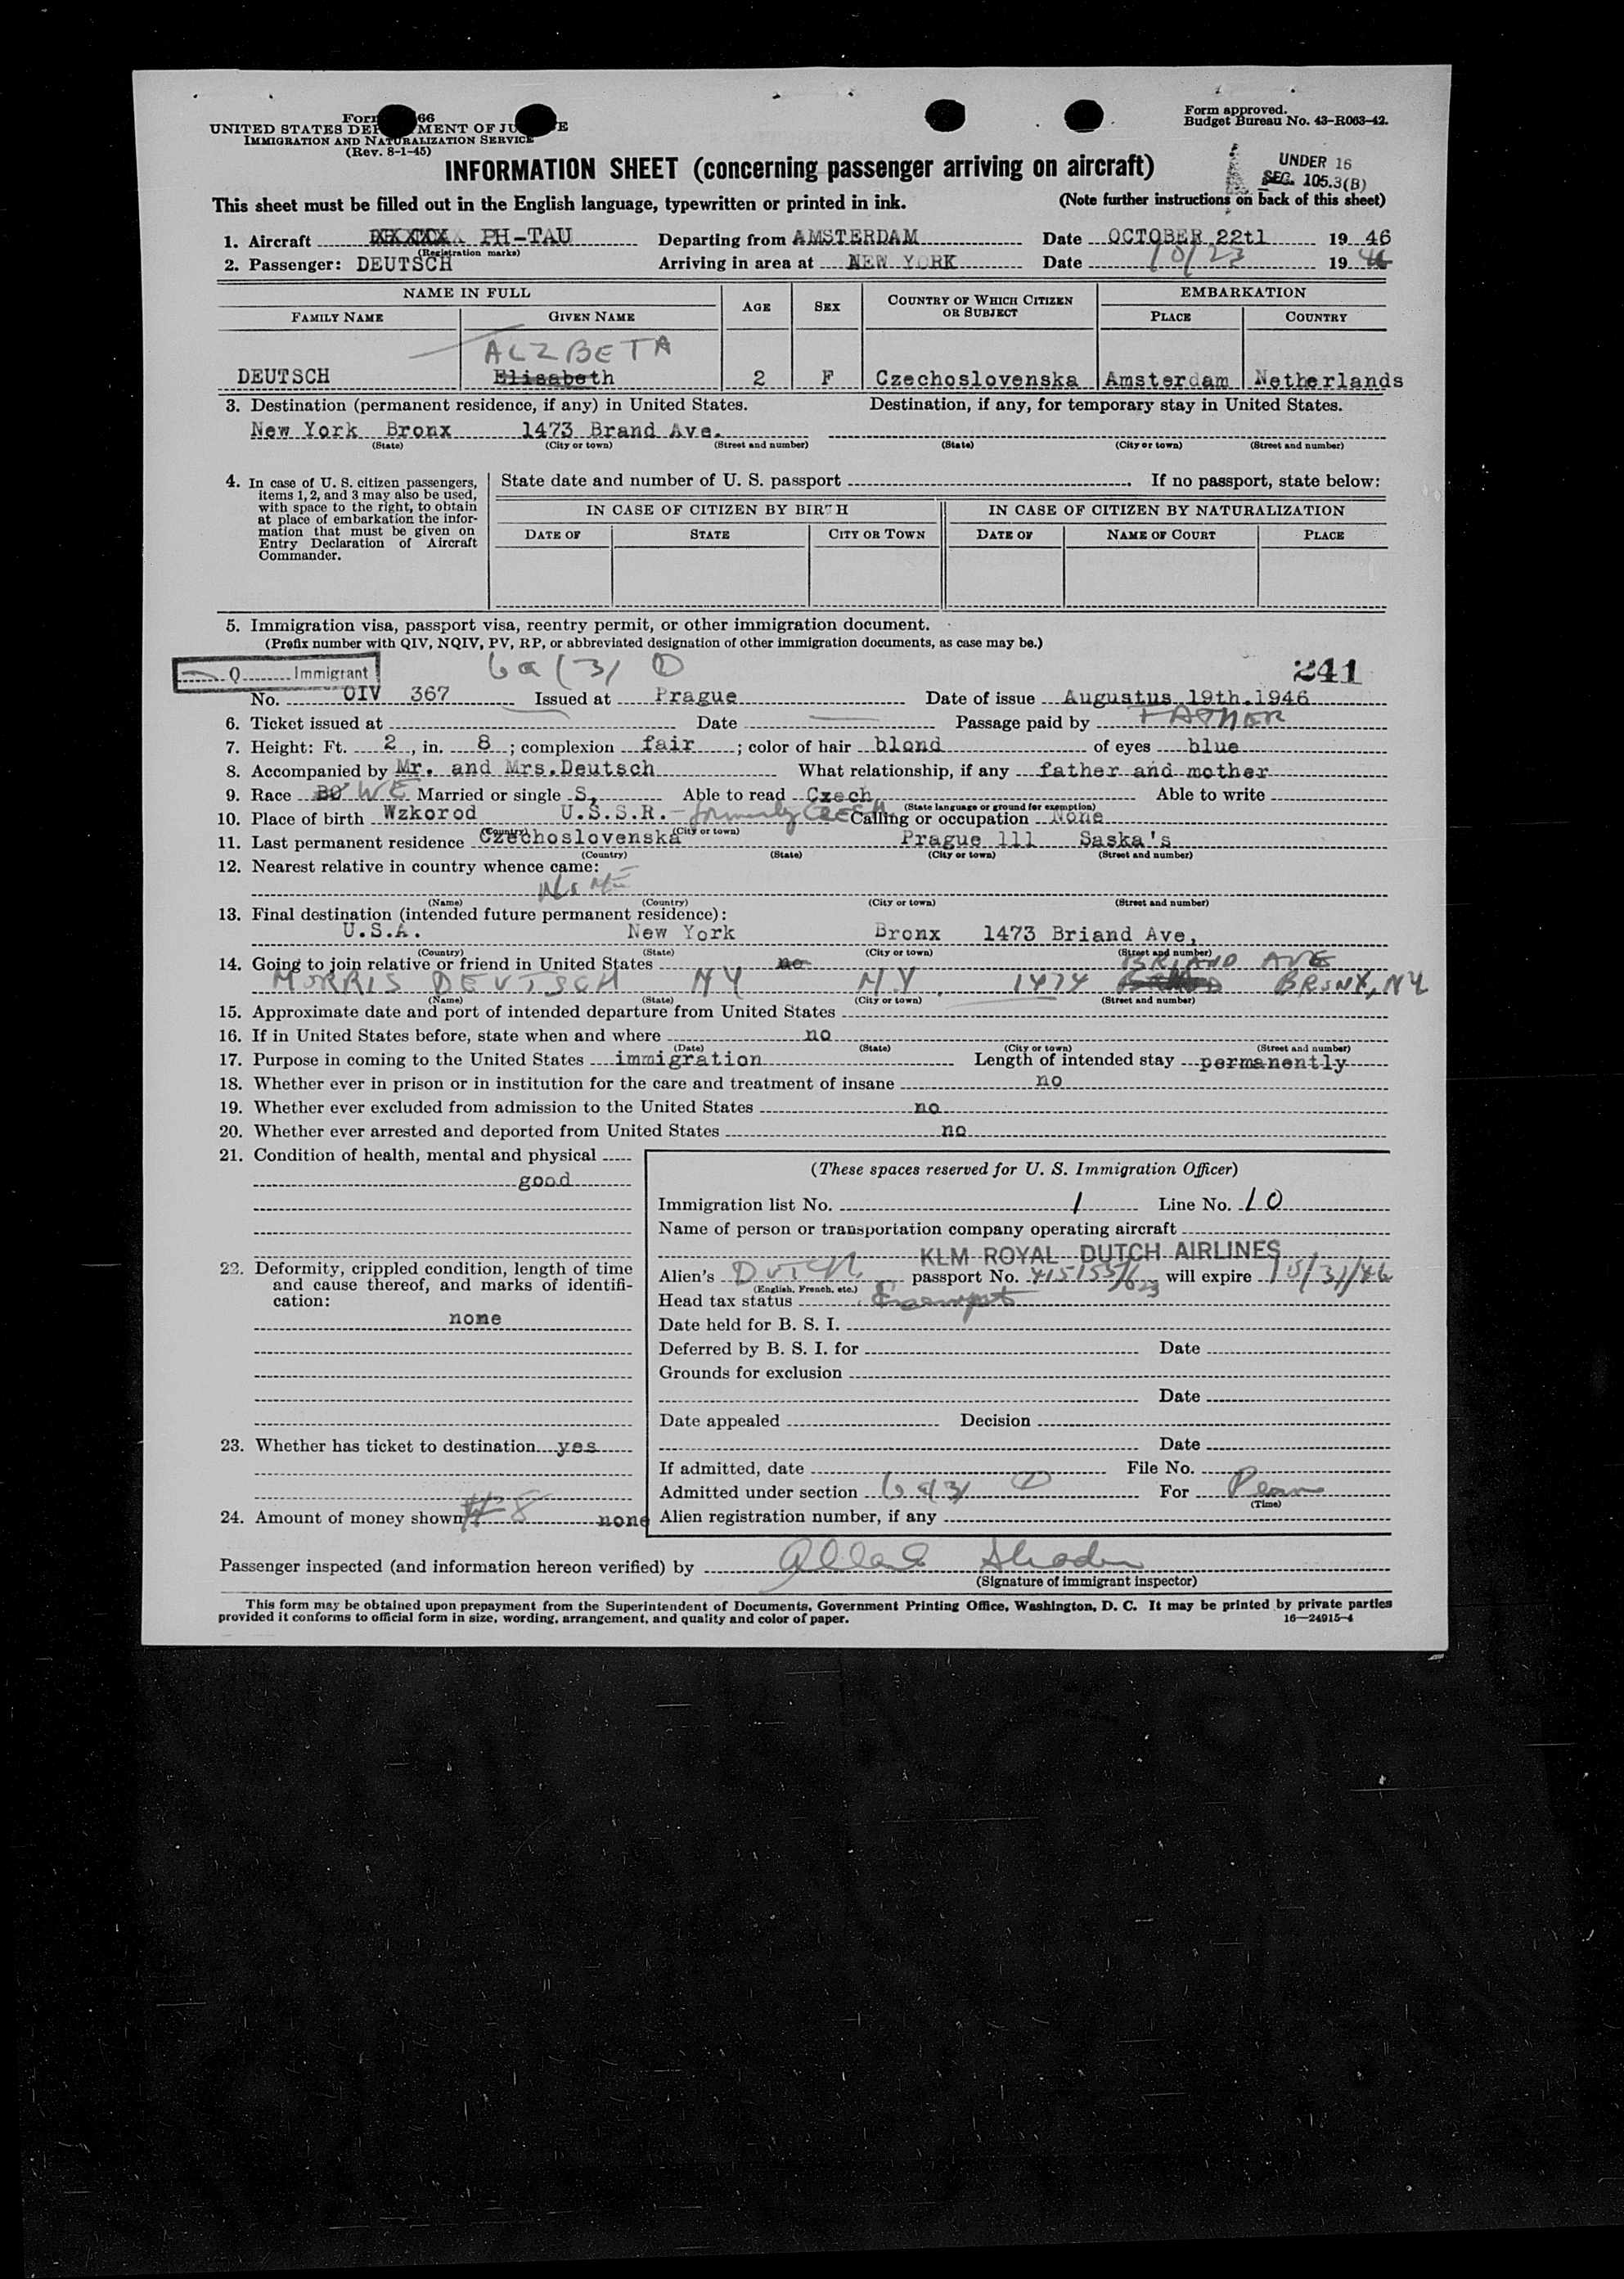 UNITED STATES DEPARTMENT OF JUSTICE
IMMIGRATION AND NATURALIZATION SERVICE
(Rev. 8-1-45)
Form approved.
Budget Bureau No. 43-R063-42.
INFORMATION SHEET (concerning passenger arriving on aircraft)
UNDER 16
SEC. 105.3(B)
This sheet must be filled out in the English language, typewritten or printed in ink.
(Note further instructions on back of this sheet)
1. Aircraft PH-TAU Departing from AMSTERDAM Date OCTOBER 22tl 19 46
(Registration marks)
2. Passenger: DEUTSCH Arriving in area at NEW YORK Date 10/23 19 46
NAME IN FULL AGE SEX COUNTRY OF WHICH CITIZEN OR SUBJECT EMBARKATION
FAMILY NAME GIVEN NAME PLACE COUNTRY
ALZBETA
DEUTSCH Elisabeth 2 F Czechoslovenska Amsterdam Netherlands
3. Destination (permanent residence, if any) in United States. Destination, if any, for temporary stay in United States.
New York Bronx 1473 Brand Ave.
(State) (City or town) (Street and number) (State) (City or town) (Street and number)
4. In case of U. S. citizen passengers, items 1, 2, and 3 may also be used, with space to the right, to obtain at place of embarkation the information that must be given on Entry Declaration of Aircraft Commander.
State date and number of U. S. passport If no passport, state below:
IN CASE OF CITIZEN BY BIRTH IN CASE OF CITIZEN BY NATURALIZATION
DATE OF STATE CITY OR TOWN DATE OF NAME OF COURT PLACE
5. Immigration visa, passport visa, reentry permit, or other immigration document.
(Prefix number with QIV, NQIV, PV, RP, or abbreviated designation of other immigration documents, as case may be.)
Q Immigrant 6a(3) 241
No. QIV 367 Issued at Prague Date of issue Augustus 19th.1946
6. Ticket issued at Date Passage paid by FATHER
7. Height: Ft. 2, in. 8; complexion fair; color of hair blond of eyes blue
8. Accompanied by Mr. and Mrs.Deutsch What relationship, if any father and mother
9. Race WE Married or single S, Able to read Czech Able to write
(State language or ground for exemption)
10. Place of birth Wzkorod U.S.S.R. - formerly CZECH Calling or occupation None
(Country) (City or town)
11. Last permanent residence Czechoslovenska Prague 111 Saska's
(Country) (State) (City or town) (Street and number)
12. Nearest relative in country whence came:
NONE
(Name) (Country) (City or town) (Street and number)
13. Final destination (intended future permanent residence):
U.S.A. New York Bronx 1473 Briand Ave,
(Country) (State) (City or town) (Street and number)
14. Going to join relative or friend in United States no BRIAND AVE
MORRIS DEUTSCH NY NY. 1474 BRONX, NY
(Name) (State) (City or town) (Street and number)
15. Approximate date and port of intended departure from United States
16. If in United States before, state when and where no
(Date) (State) (City or town) (Street and number)
17. Purpose in coming to the United States immigration Length of intended stay permanently
18. Whether ever in prison or in institution for the care and treatment of insane no
19. Whether ever excluded from admission to the United States no
20. Whether ever arrested and deported from United States no
21. Condition of health, mental and physical
good
22. Deformity, crippled condition, length of time and cause thereof, and marks of identification:
none
23. Whether has ticket to destination yes
24. Amount of money shown # 8 none
(These spaces reserved for U. S. Immigration Officer)
Immigration list No. 1 Line No. 10
Name of person or transportation company operating aircraft
KLM ROYAL DUTCH AIRLINES
Alien's passport No. will expire
(English, French, etc.)
Head tax status Exempt
Date held for B. S. I.
Deferred by B. S. I. for Date
Grounds for exclusion
Date
Date appealed Decision
Date
If admitted, date File No.
Admitted under section 6a(3) For Perm
(Time)
Alien registration number, if any
Passenger inspected (and information hereon verified) by
(Signature of immigrant inspector)
This form may be obtained upon prepayment from the Superintendent of Documents, Government Printing Office, Washington, D. C. It may be printed by private parties
provided it conforms to official form in size, wording, arrangement, and quality and color of paper. 16—24915-4